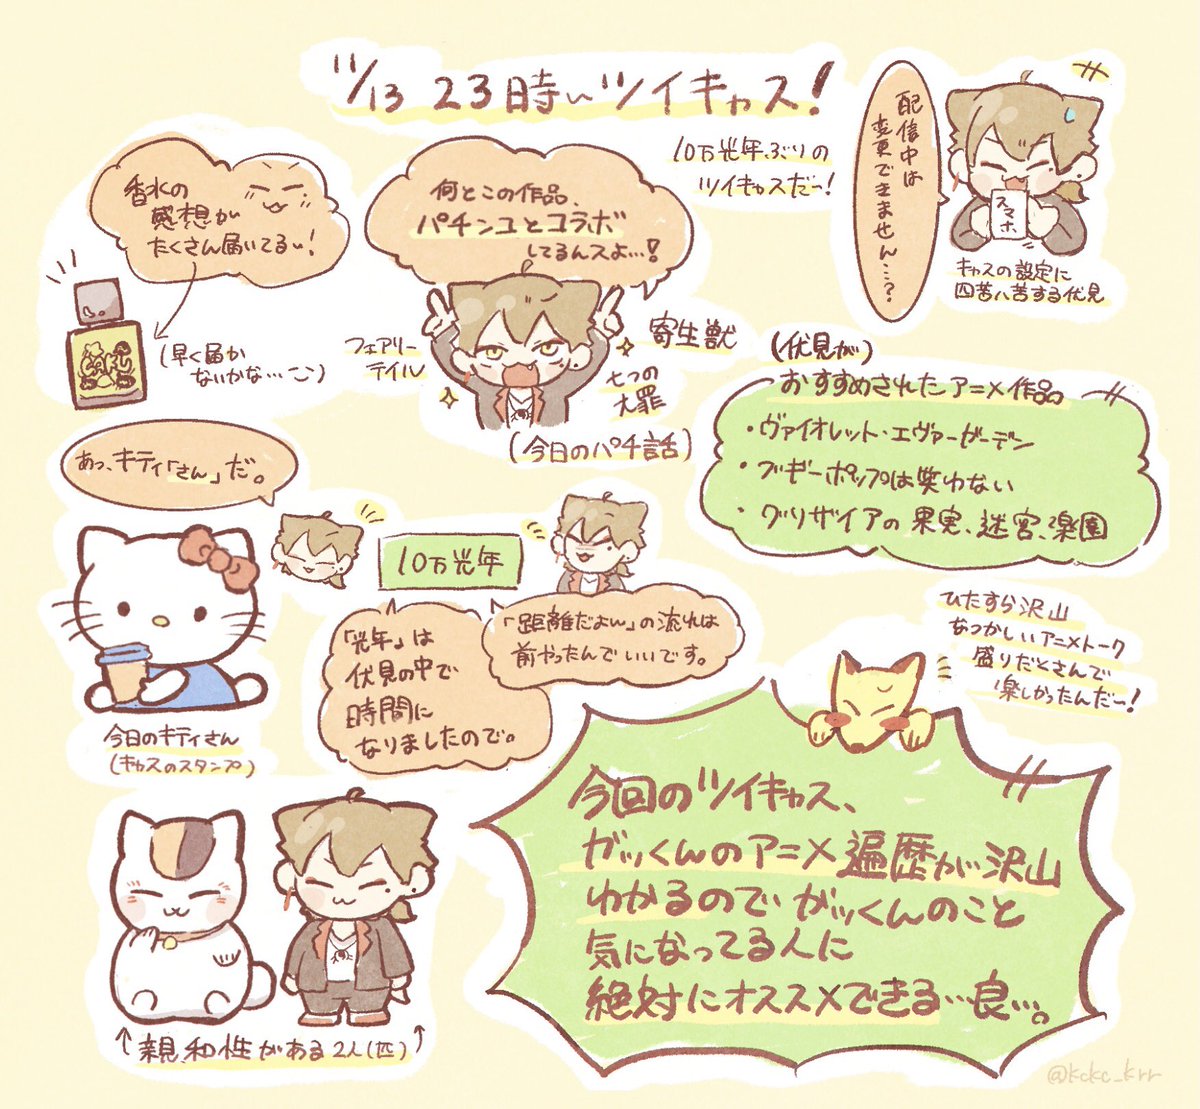 11/13 23時いツイキャス!
10万光年ぶりの
ツイキャスだー!
配信中は
変更できません…?
スマホ
キャスの設定に
四苦八苦する伏見
香水の
感想が
たくさん届いてるぅ!
(早く届か
ないかな…)
何とこの作品、
パチンコとコラボ
してるんスよ…!
フェアリー
テイル
寄生獣
七つの
大罪
(今日のパチ話)
(伏見が)
おすすめされたアニメ作品
・ヴァイオレット・エヴァーガーデン
・ブギーポップは笑わない
・グリザイアの果実、迷宮、楽園
あっ、キティ「さん」だ。
今日のキティさん
(キャスのスタンプ)
10万光年
「光年」は
伏見の中で
時間に
なりましたので。
「距離だよん」の流れは
前やったんでいいです。
ひたすら沢山
なつかしいアニメトーク
盛りだくさんで
楽しかったんだー!
今回のツイキャス、
ガッくんのアニメ遍歴が沢山
わかるのでガッくんのこと
気になってる人に
絶対にオススメできる…良…。
↑親和性がある2人(匹)↑
@kckc_krr